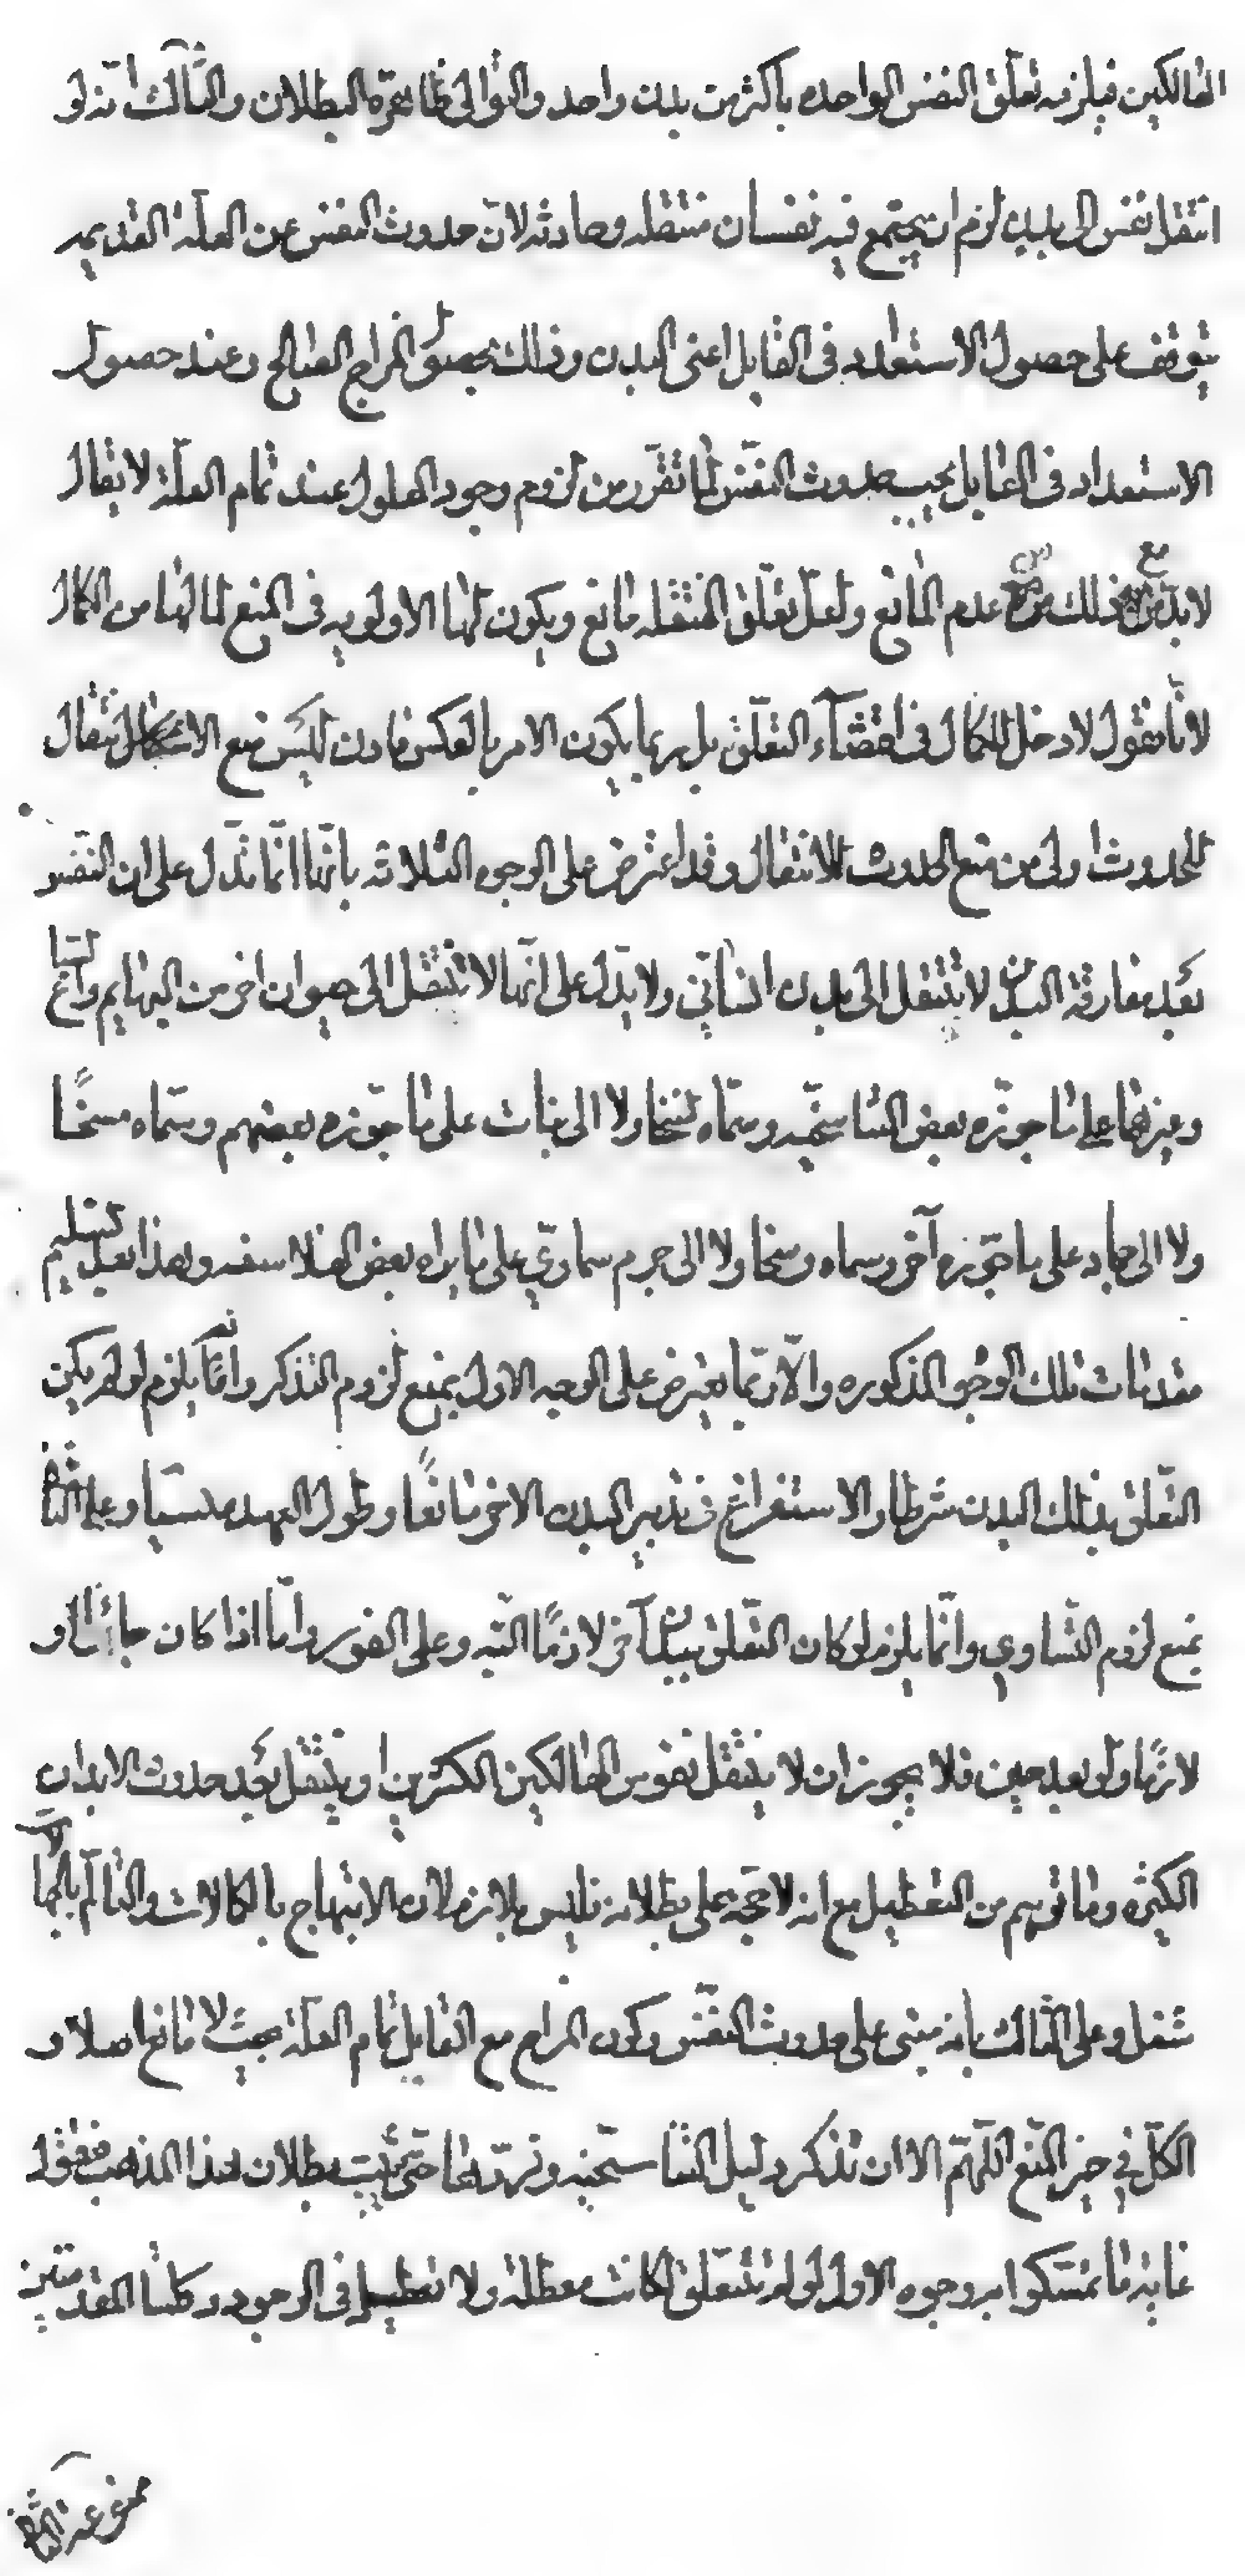 الهالكين فيلزمه تعلّق النفس الواحده باكثر من بدن واحد والتوالى ظاهرة البطلان والثّالث انّه لو
انتقل نفس الى بدن لزم ان يجتمع فيه نفسان منتقله وحادثه لانّ حدوث النفس عن العلّة القديمه
يتوقف على حصول الاستعداد فى القابل اعنى البدن وذلك بحصول المزاج الصالح وعند حصول
الاستعداد فى القابل يجب حدوث النفس لما تقرّر من لزوم وجود المعلول عند تمام العلّة لا يقال
لابدّ مع ذلك من عدم المانع ولعلّ تعلّق المنتقله مانع ويكون لها الاولويه فى المنع لما لها من الكمال
لانّا نقول لا دخل للكمال فى اقتضآء التعلّق بل ربما يكون الامر بالعكس فاذن ليس منع الانتقال
للحدوث اولى من منع الحدوث للانتقال وقد اعترض على الوجوه الثلاثه بانّها انّما تدّل على ان النفس
بعد مفارقة البدن لا ينتقل الى بدن انسانّى ولا يدّل على انّها لا ينتقل الى حيوان اخر من البهايم والسّباع
وغيرهما على ما جوزّه بعض التناسخيّه وسمّاه نسخا ولا الى نبات على ما جوّزه بعضهم وسمّاه مسخًا
ولا الى جماد على ما جوّزه آخر وسماه رسخا ولا الى جرم سماوىّ على ما يراه بعض الفلاسفه وهذا بعد تسليم
مقدمات تلك الوجوه المذكوره والّا ربّما يعترض على الوجه الاول بمنع لزوم التذكر وانّما يلزم لو لم يكن
التّعلق بذلك البدن شرطا والاستغراغ فى تدبير البدن الاخر مانعًا وطول العهد منسيّا وعلى الثّانى
بمنع لزوم التّساوي وانّما يلزم لو كان التّعلق ببدن آخر لازمًا البتّه وعلى الفور وامّا اذا كان جائزا او
لازمًا ولو بعد حين فلا يجوز ان لا ينتقل نفوس الهالكين الكثرين او ينتقل بعد حدوث الابدان
الكثيره وما توهم من التعطيل مع انه لا حجّة على بطلانه فليس بلازم لان الابتهاج بالكمالات والتالّم بالجهالات
شغل وعلى الثّالث بانه مبنى على حدوث النفس وكون المزاج مع القابل تمام العلّة بحيث لا مانع اصلا و
الكلّ في حيز المنع اللّهمّ الا ان نذكر دليل التناسخيّه ونردّها حتّى يثبت بطلان هذا المذهب فنقول
غاية ما تمسّكوا به وجوه الاول لو لم تتعلق لكانت معطلة ولا تعطيل فى الوجود وكلتا المقدمتين
ممنوعة